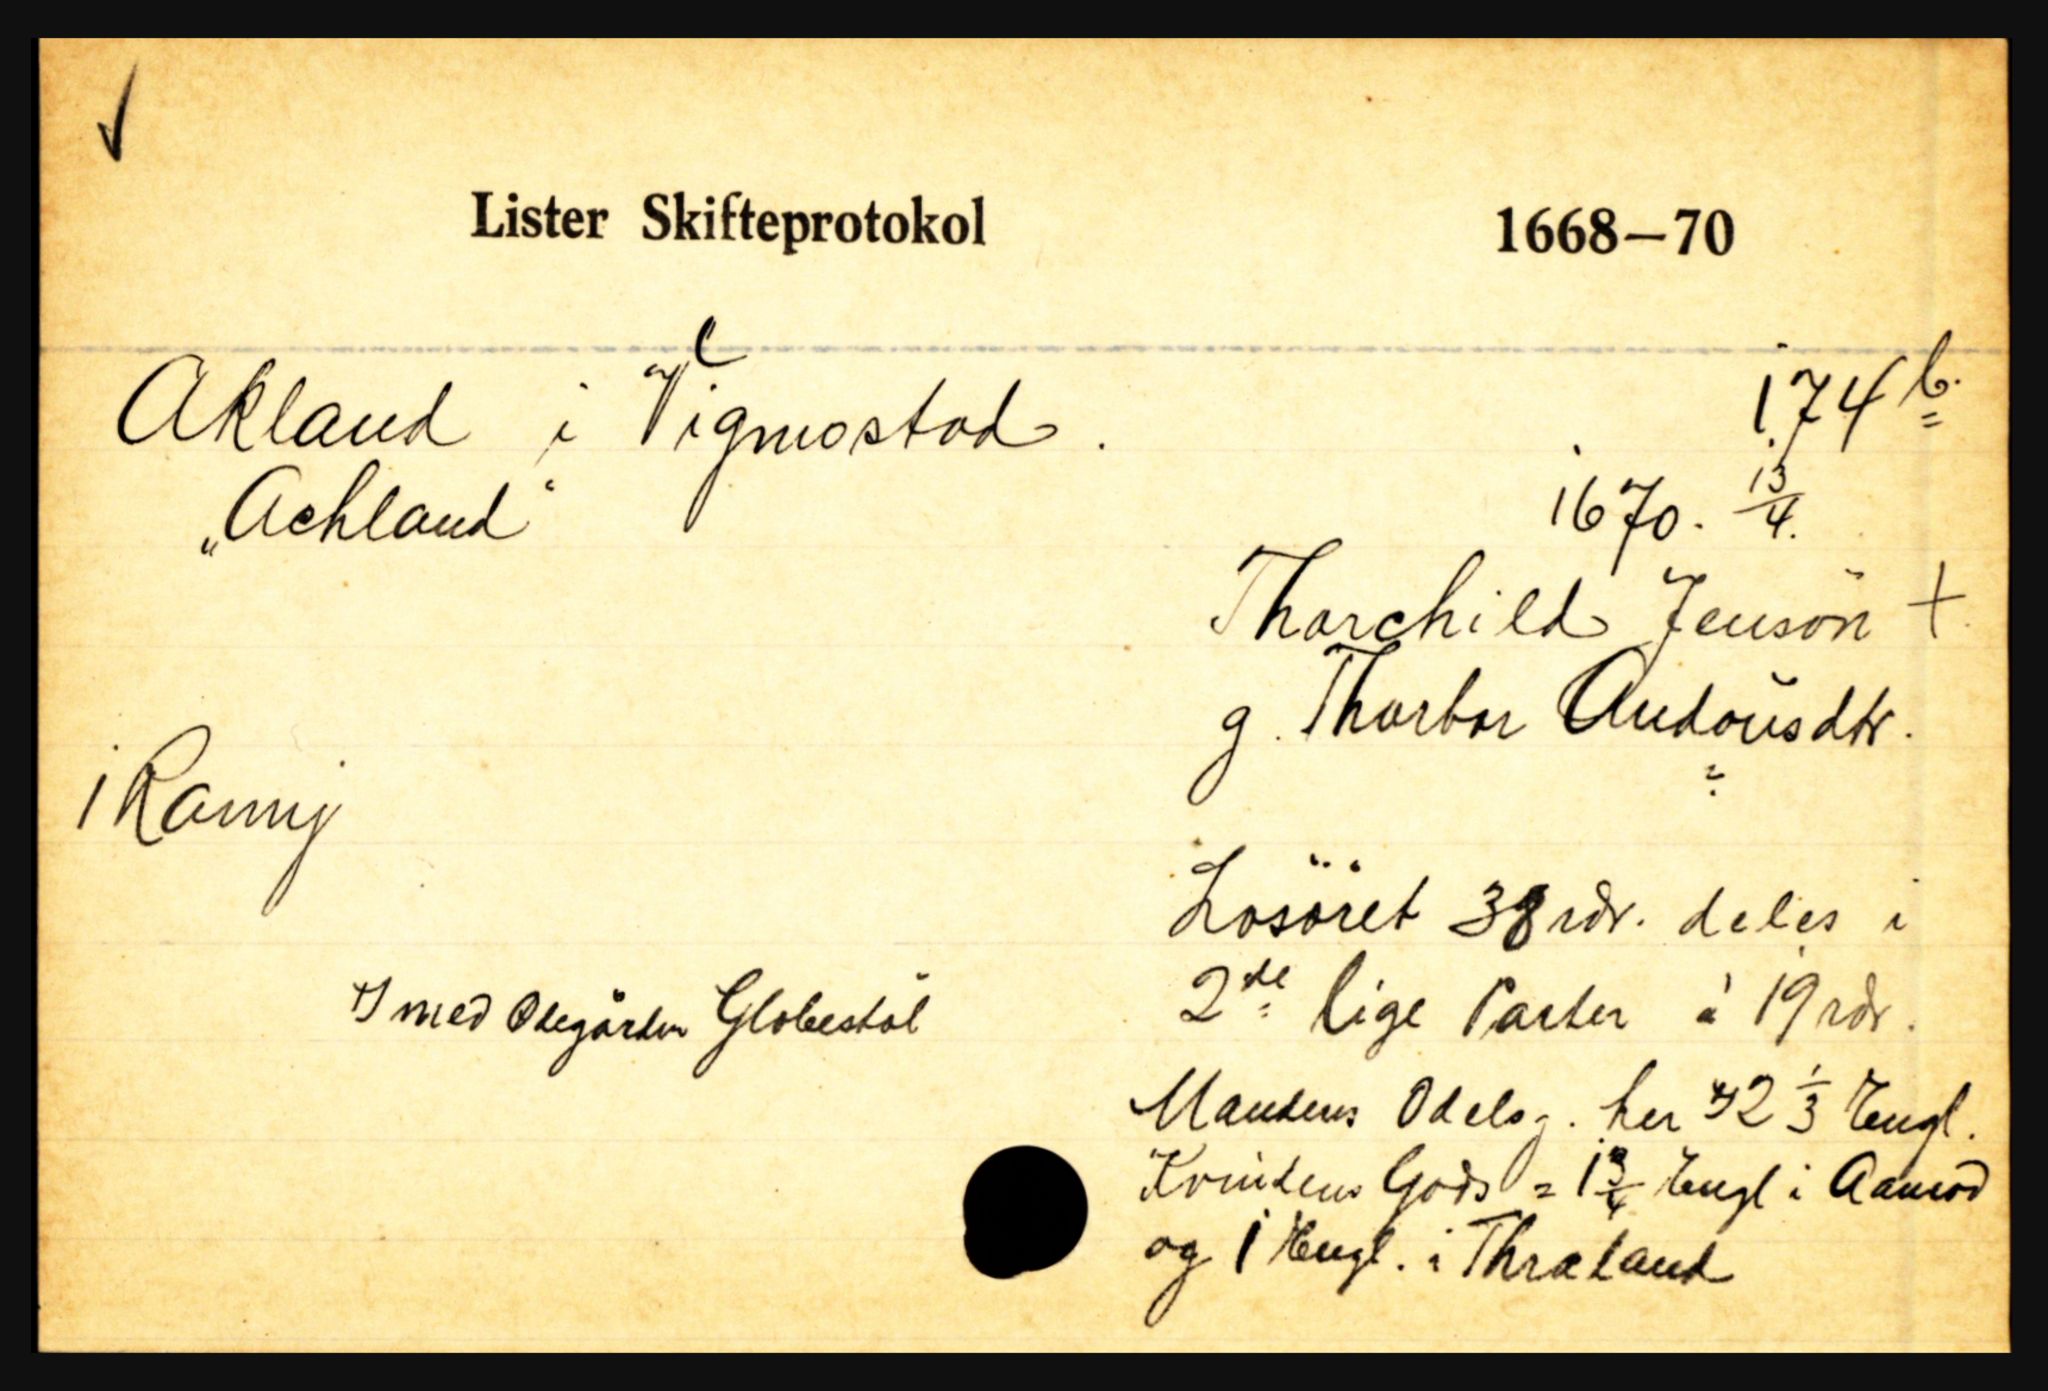 Lister Skifteprotokol 1668–70
Akland i Vigmostad. 174 b.
„Achland“ 1670. 13/4.
Thorchild Jensön +
g. Thorbor Audousdtr.
i Ramij
Losöret 38 rdr. deles i
2de lige Parter à 19 rdr.
*) med Odegården Globestöl
Mandens Odelsg. her *) 2 1/3 Engl.
Kvindens Gods = 1 3/4 Engl i Aamod
og 1 Engl. i Thraland